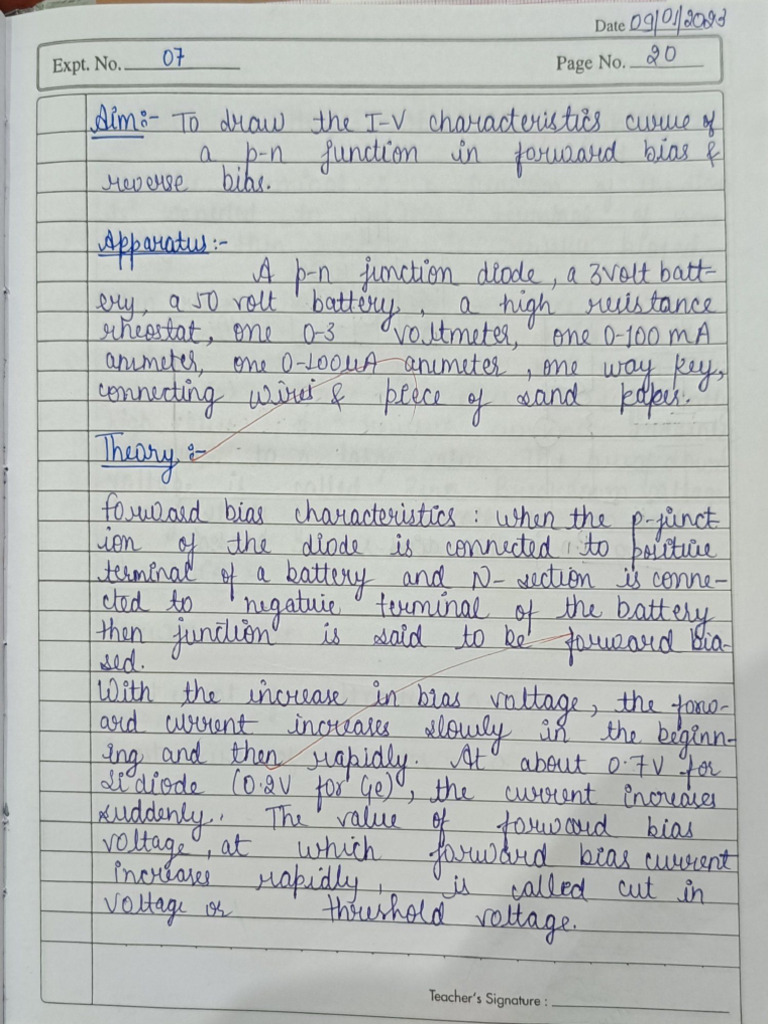 Date 09/01/2023
Expt. No. 07
Page No. 20
Aim:- To draw the I-V characteristics curve of
a p-n junction in forward bias &
reverse bias.
Apparatus:-
A p-n junction diode, a 3volt batt-
ery, a 50 volt battery, a high resistance
rheostat, one 0-3 voltmeter, one 0-100 mA
ammeter, one 0-100μA ammeter, one way key,
connecting wires & piece of sand paper.
Theory:-
forward bias characteristics: when the p-junct-
ion of the diode is connected to positive
terminal of a battery and N-section is conne-
cted to negative terminal of the battery
then junction is said to be forward bia-
sed.
With the increase in bias voltage, the forw-
ard current increases slowly in the beginn-
ing and then rapidly. At about 0.7V for
Si diode (0.2V for Ge), the current increases
suddenly. The value of forward bias
voltage, at which forward bias current
increases rapidly, is called cut in
voltage or threshold voltage.
Teacher's Signature :